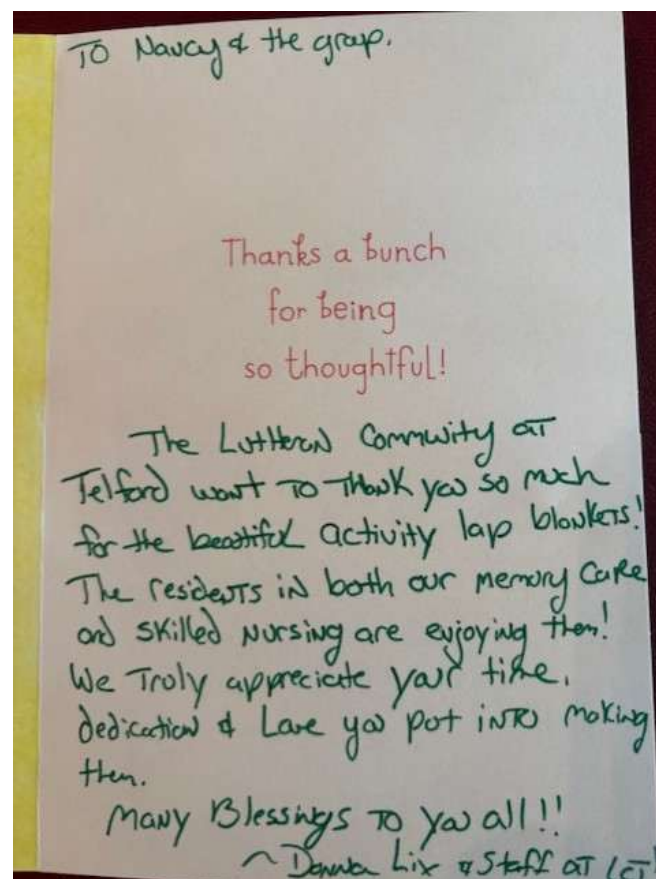 TO Nancy & the group.
Thanks a bunch
for being
so thoughtful!
The Lutheran Community at
Telford want to thank you so much
for the beautiful activity lap blankets!
The residents in both our memory care
and skilled nursing are enjoying them!
We truly appreciate your time,
dedication & Love you put into making
them.
Many Blessings to you all!!
~ Donna Lix & Staff at LCT!